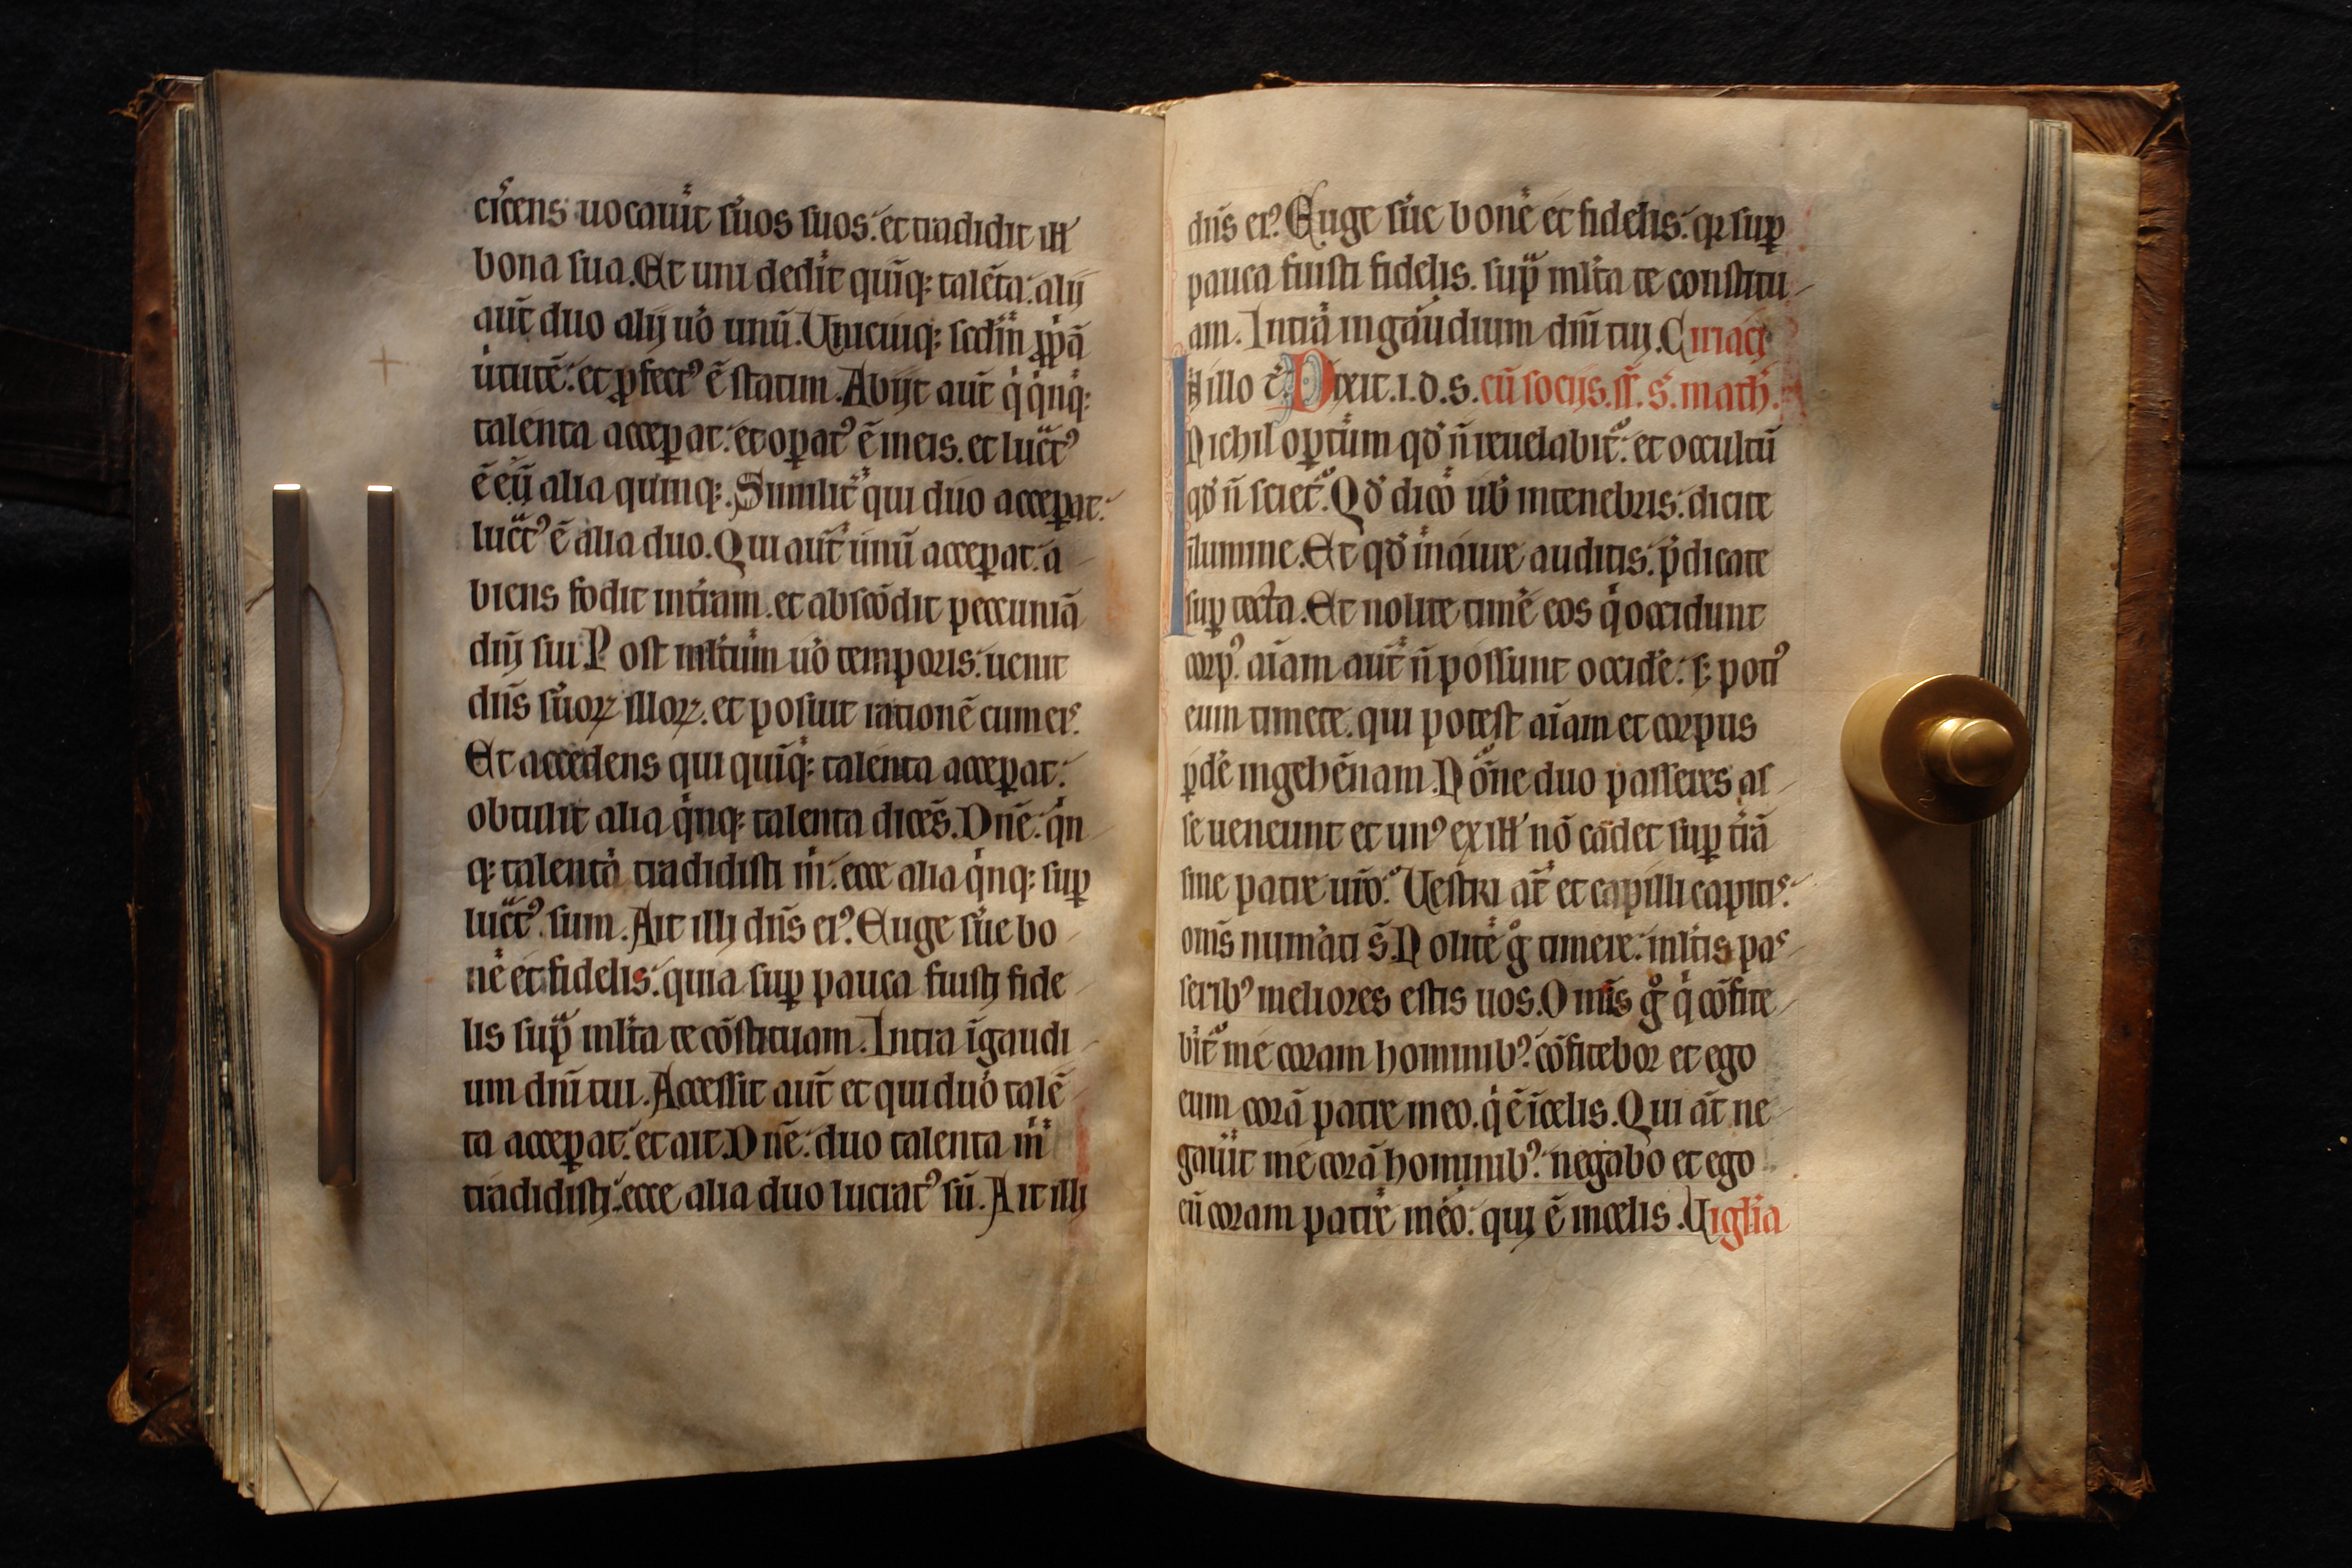 cit̃ens uocauit ẜuos suos. et tradidit ill̵
bona sua. Et uni dedit quinq; talẽta. alij
aut̃ duo alij uo̊ unũ. Unicuiq; scd̃m ꝓpͥã
uͥtutẽ. et ꝓfectꝰ ẽ statim. Abijt aut̃ qͥ qͥnq;
talenta acceꝑat. et oꝑatꝰ ẽ in eis. et lucͣtꝰ
ẽ eij alia quinq;. Similit̃ qui duo acceꝑat.
lucͣtꝰ ẽ alia duo. Qui aut̃ unũ acceꝑat. a
biens fodit in tͥram. et abscõdit peccuniã
dñj sui. Post ml̃tum uo̊ temporis. uenit
dñs ẜuoꝝ illoꝝ. et posuit rationẽ cum eis.
Et accedens qui quĩq; talenta acceꝑat.
obtulit alia qͥnq; talenta dicẽs. Dñe. qͥn
q; talenta tradidisti m̃. ecce alia qͥnq; suꝑ
lucͣtꝰ sum. Ait illi dñs eiꝰ. Euge ẜue bo
ne et fidelis. quia suꝑ pauca fuisti fide
lis suꝑ ml̃ta te cõstituam. Intra ĩ gaudi
um dñi tui. Accessit aut̃ et qui duo talẽ
ta acceꝑat. et ait. Dñe. duo talenta m̃
tradidisti. ecce alia duo lucratꝰ sũ. Ait illi
dñs eiꝰ. Euge ẜue bone et fidelis. qr suꝑ
pauca fuisti fidelis. suꝑ ml̃ta te constitu
am. Intra in gaudium dñi tui. Ciriaci
In illo t̃. Dixit .i. d. s. cũ socijs. ẜ. s. math̃.
Nichil oꝑtum qd̃ ñ reuelabit̃. et occultũ
qd̃ ñ sciet̃. Qd̃ dico uob̃ in tenebris. dicite
ĩ lumine. Et qd̃ in aure auditis. p̃dicate
suꝑ tecta. Et nolite timẽ eos qͥ occidunt
corpꝰ. aĩam aut̃ ñ possunt occidẽ. s; potiꝰ
eum timete. qui potest aĩam et corpus
ꝑdẽ in gehẽnam. Nõne duo passeres as
se ueneunt et unꝰ ex ill̵ nõ cadet suꝑ trã
sine patre ur̃o. Uestri at̃ et capilli capitis
om̃s numͣati s̃. Nolite g̊ timere. ml̃tis pas
seribꝰ meliores estis uos. Om̃is g̊ qͥ cõfite
bit̃ me coram hominibꝰ. cõfitebor et ego
eum corã patre meo. qͥ ẽ ĩ celis. Qui at̃ ne
gauit me corã hominibꝰ. negabo et ego
eũ coram patre meo. qui ẽ in celis. Uigl̃ia